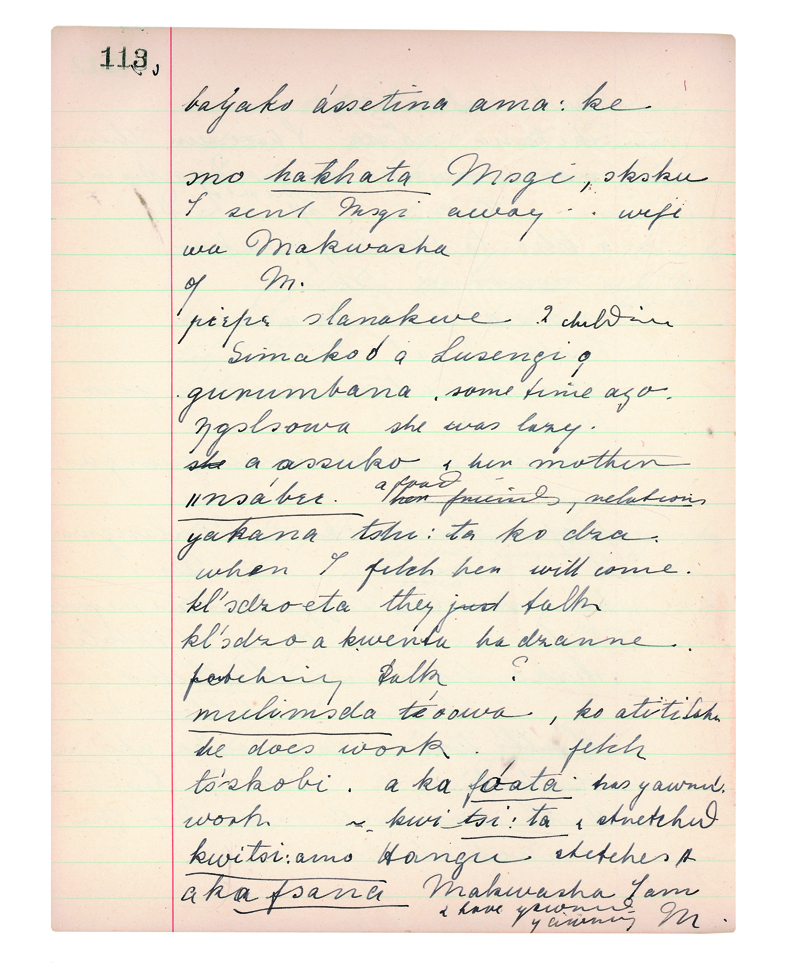 113
baɣako ássetina ama: ke
mo hakhata Msgi, sksku
I sent Msgi away . wife
wa Makwasha
of M.
piepe slanakwe 2 children
Simakoó a Lusengi
gunumbana . some time ago.
she was lazy.
she a assuko & her mother
a pod
her friends, relations
yakana tshi: ta ko dza.
when I fetch her will come.
kl'sdzoeta they just talk
kl'sdzo a kwenta hadzanne .
fetching talk ?
mulimsda , ko
he does work . fetch
tśzkobi . a ka fóata has yawned.
work ~ kwi tsi: ta & stretched
kwitsi: amo Hangu stetches
aka fsana Makwasha I am
I have yawned
yawning M.